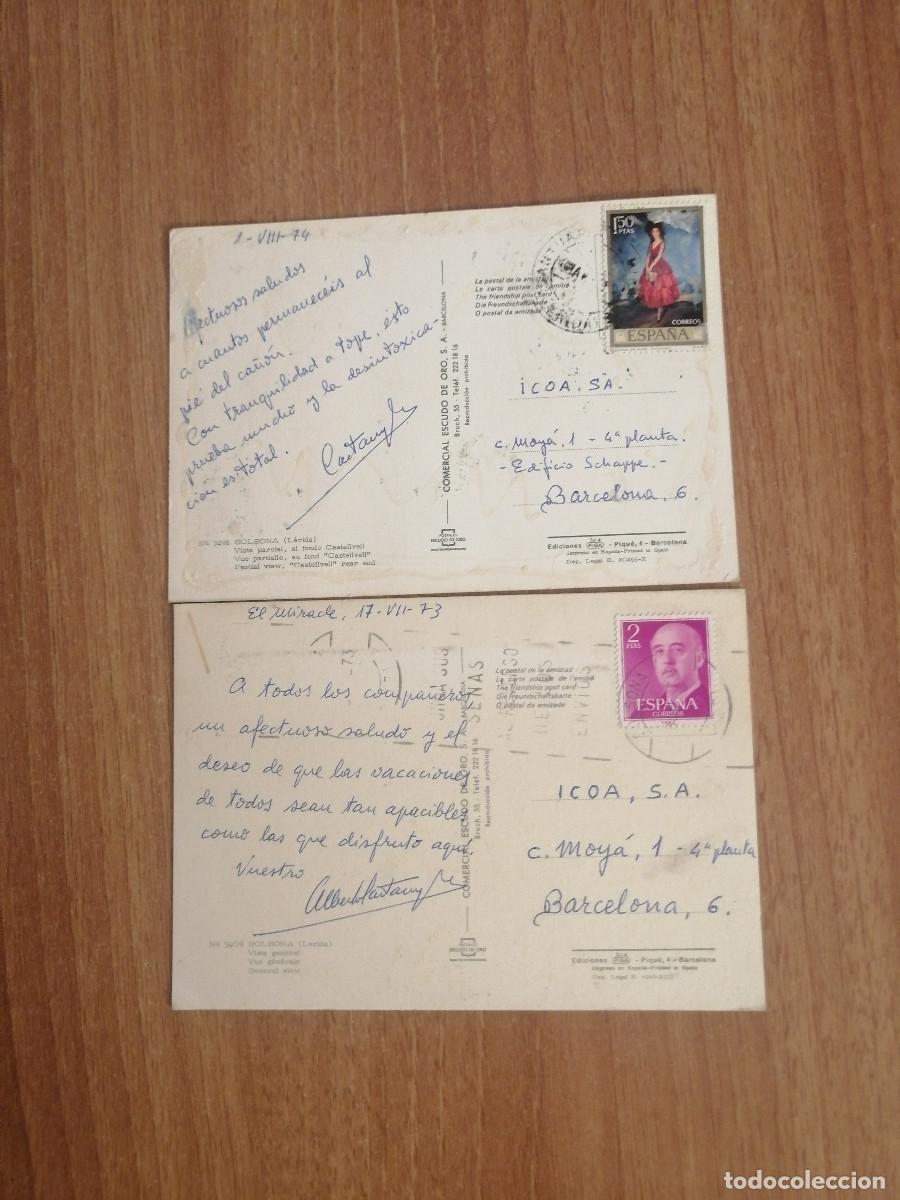 1-VIII-74
Afectuosos saludos
a cuantos permanecéis al
pié del cañón.
Con tranquilidad a tope, ésto
prueba mucho y la desintoxica-
ción es total.
Nº 3298 SOLSONA (Lérida)
Vista parcial, al fondo Castellvell
Vue partielle, au fond "Castellvell"
Partial view, "Castellvell" rear end
COMERCIAL ESCUDO DE ORO, S. A. - BARCELONA
Bruch, 55 - Teléf. 222 18 16
Reproducción prohibida
POSTALES
ESCUDO DE ORO
La postal de la amistad
La carte postale de l'amitié
The friendship post card
Die Freundschaftskarte
O postal da amizade
1,50
PTAS
CORREOS
ESPAÑA
ICOA. SA.
c. Moyá, 1 - 4ª planta.
- Edificio Schappe.-
Barcelona, 6.
Ediciones FISA - Piqué, 4 - Barcelona
Impreso en España-Printed in Spain
El Miracle, 17-VII-73
A todos los compañeros
un afectuoso saludo y el
deseo de que las vacaciones
de todos sean tan apacibles
como las que disfruto aquí.
Vuestro
Nº 3409 SOLSONA (Lérida)
Vista general
Vue générale
General view
COMERCIAL ESCUDO DE ORO, S. A. - BARCELONA
Bruch, 55 - Teléf. 222 18 16
Reproducción prohibida
ESCUDO DE ORO
SEÑAS
La postal de la amistad
La carte postale de l'amitié
The friendship post card
Die Freundschaftskarte
O postal da amizade
2
PTAS
ESPAÑA
CORREOS
ICOA, S.A.
c. Moyá, 1 - 4ª planta
Barcelona, 6.
Ediciones FISA - Piqué, 4 - Barcelona
Impreso en España-Printed in Spain
todocoleccion